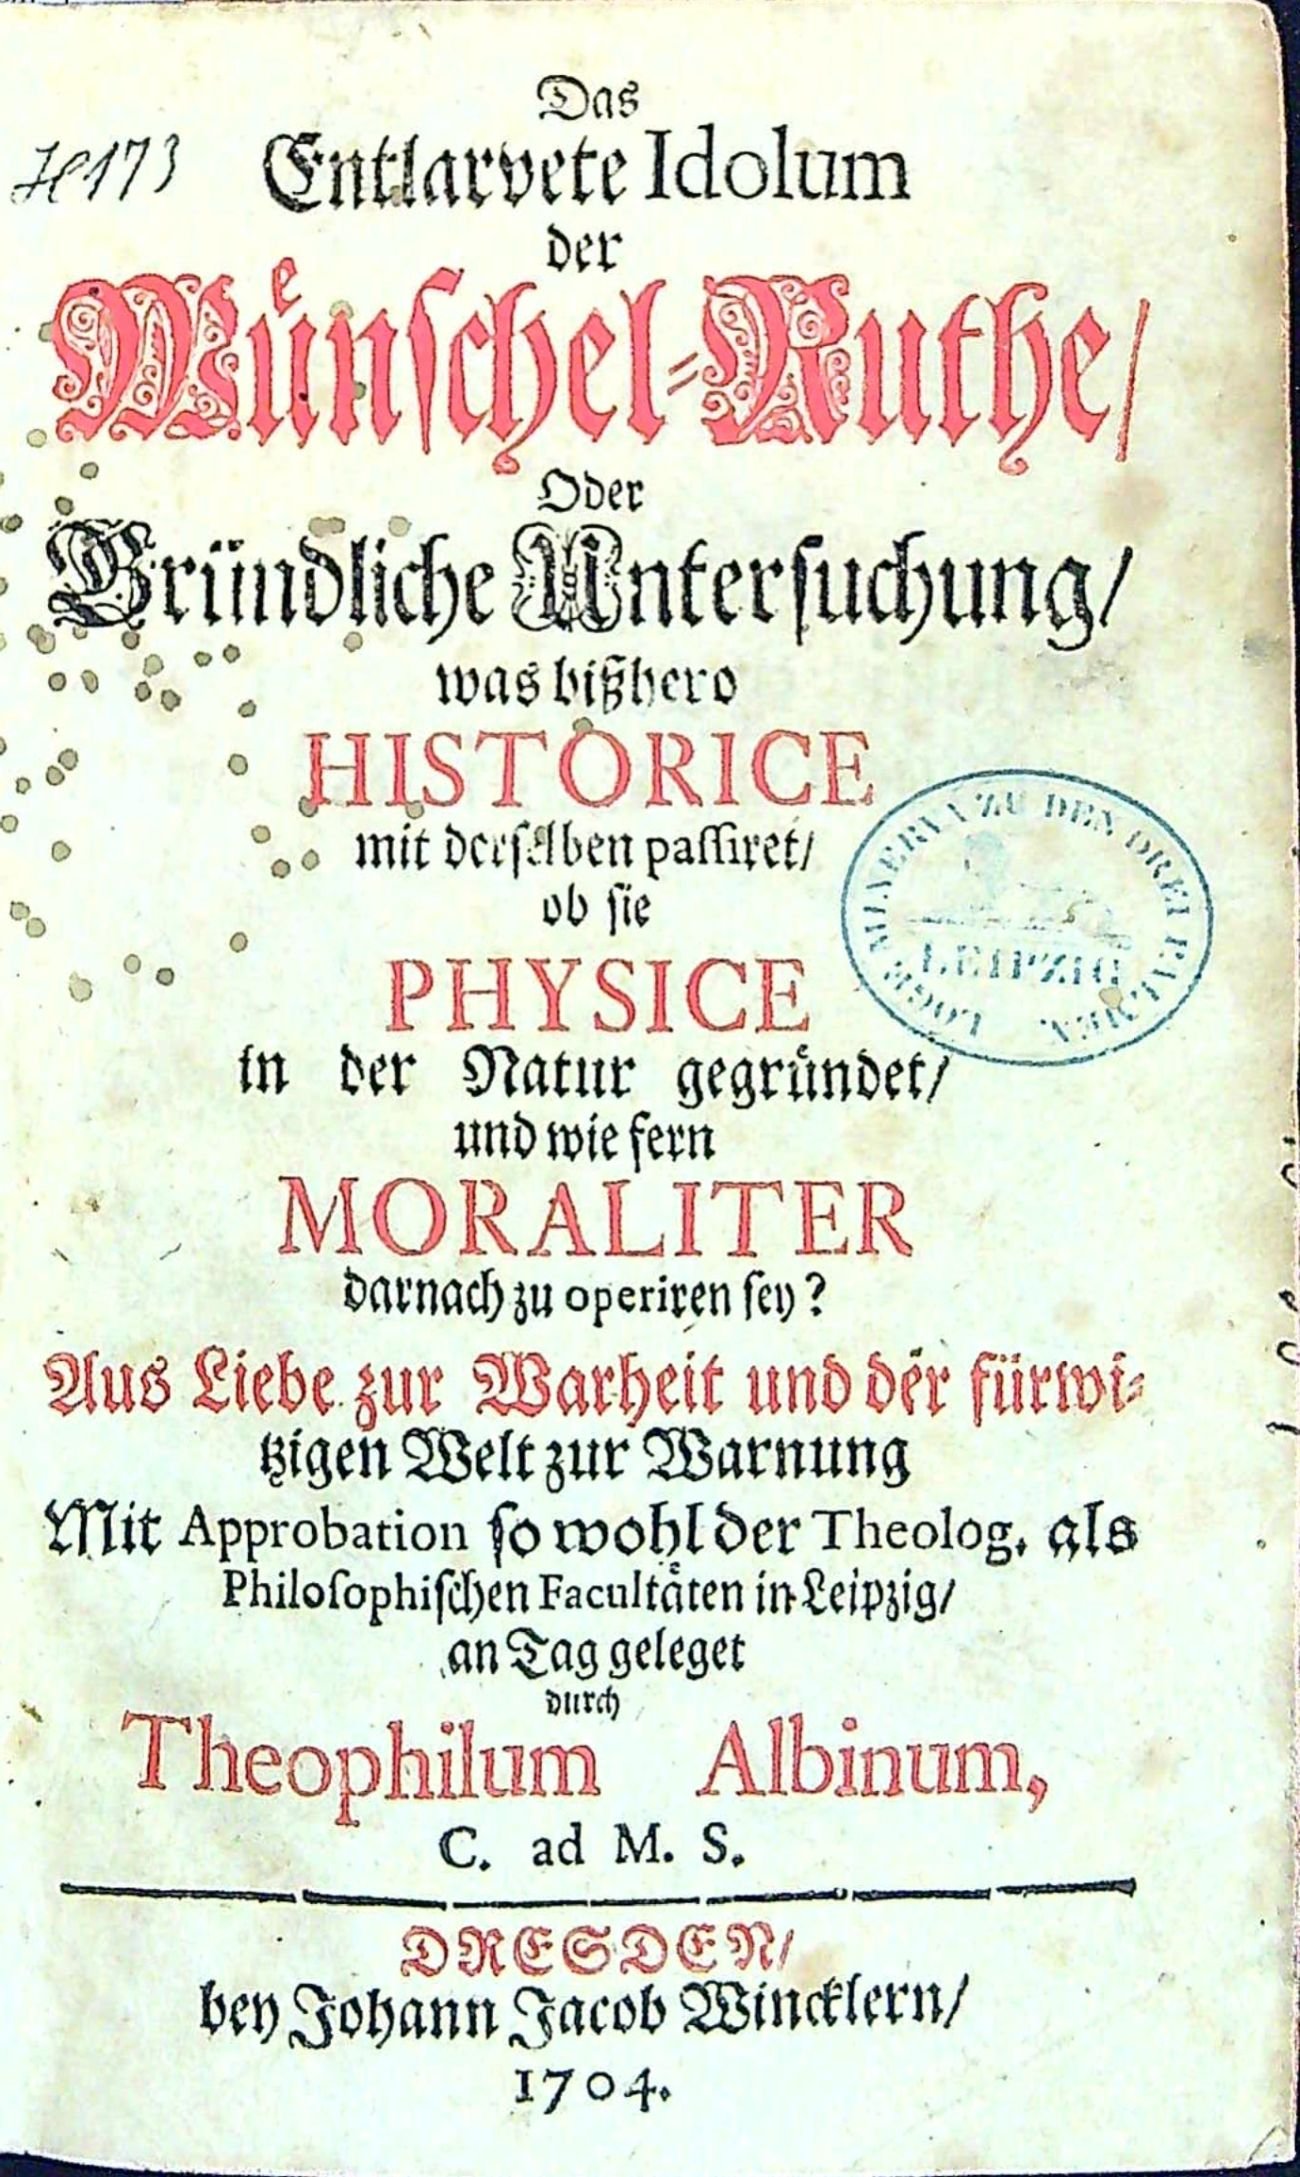 Das
He173
Entlarvete Idolum
der
Wuͤnſchel-Ruthe/
Oder
Gründliche Unterſuchung/
was bißhero
HISTORICE
mit derſelben paſſiret/
ob ſie
PHYSICE
in der Natur gegruͤndet/
und wie fern
MORALITER
darnach zu operiren ſey?
Aus Liebe zur Warheit und der fürwi-
tzigen Welt zur Warnung
Mit Approbation ſo wohl der Theolog. als
Philoſophiſchen Facultaͤten in Leipzig/
an Tag geleget
durch
Theophilum Albinum,
C. ad M. S.
DRESDEN/
bey Johann Jacob Wincklern/
1704.
LOGE MINERVA ZU DEN DREI PALMEN.
LEIPZIG